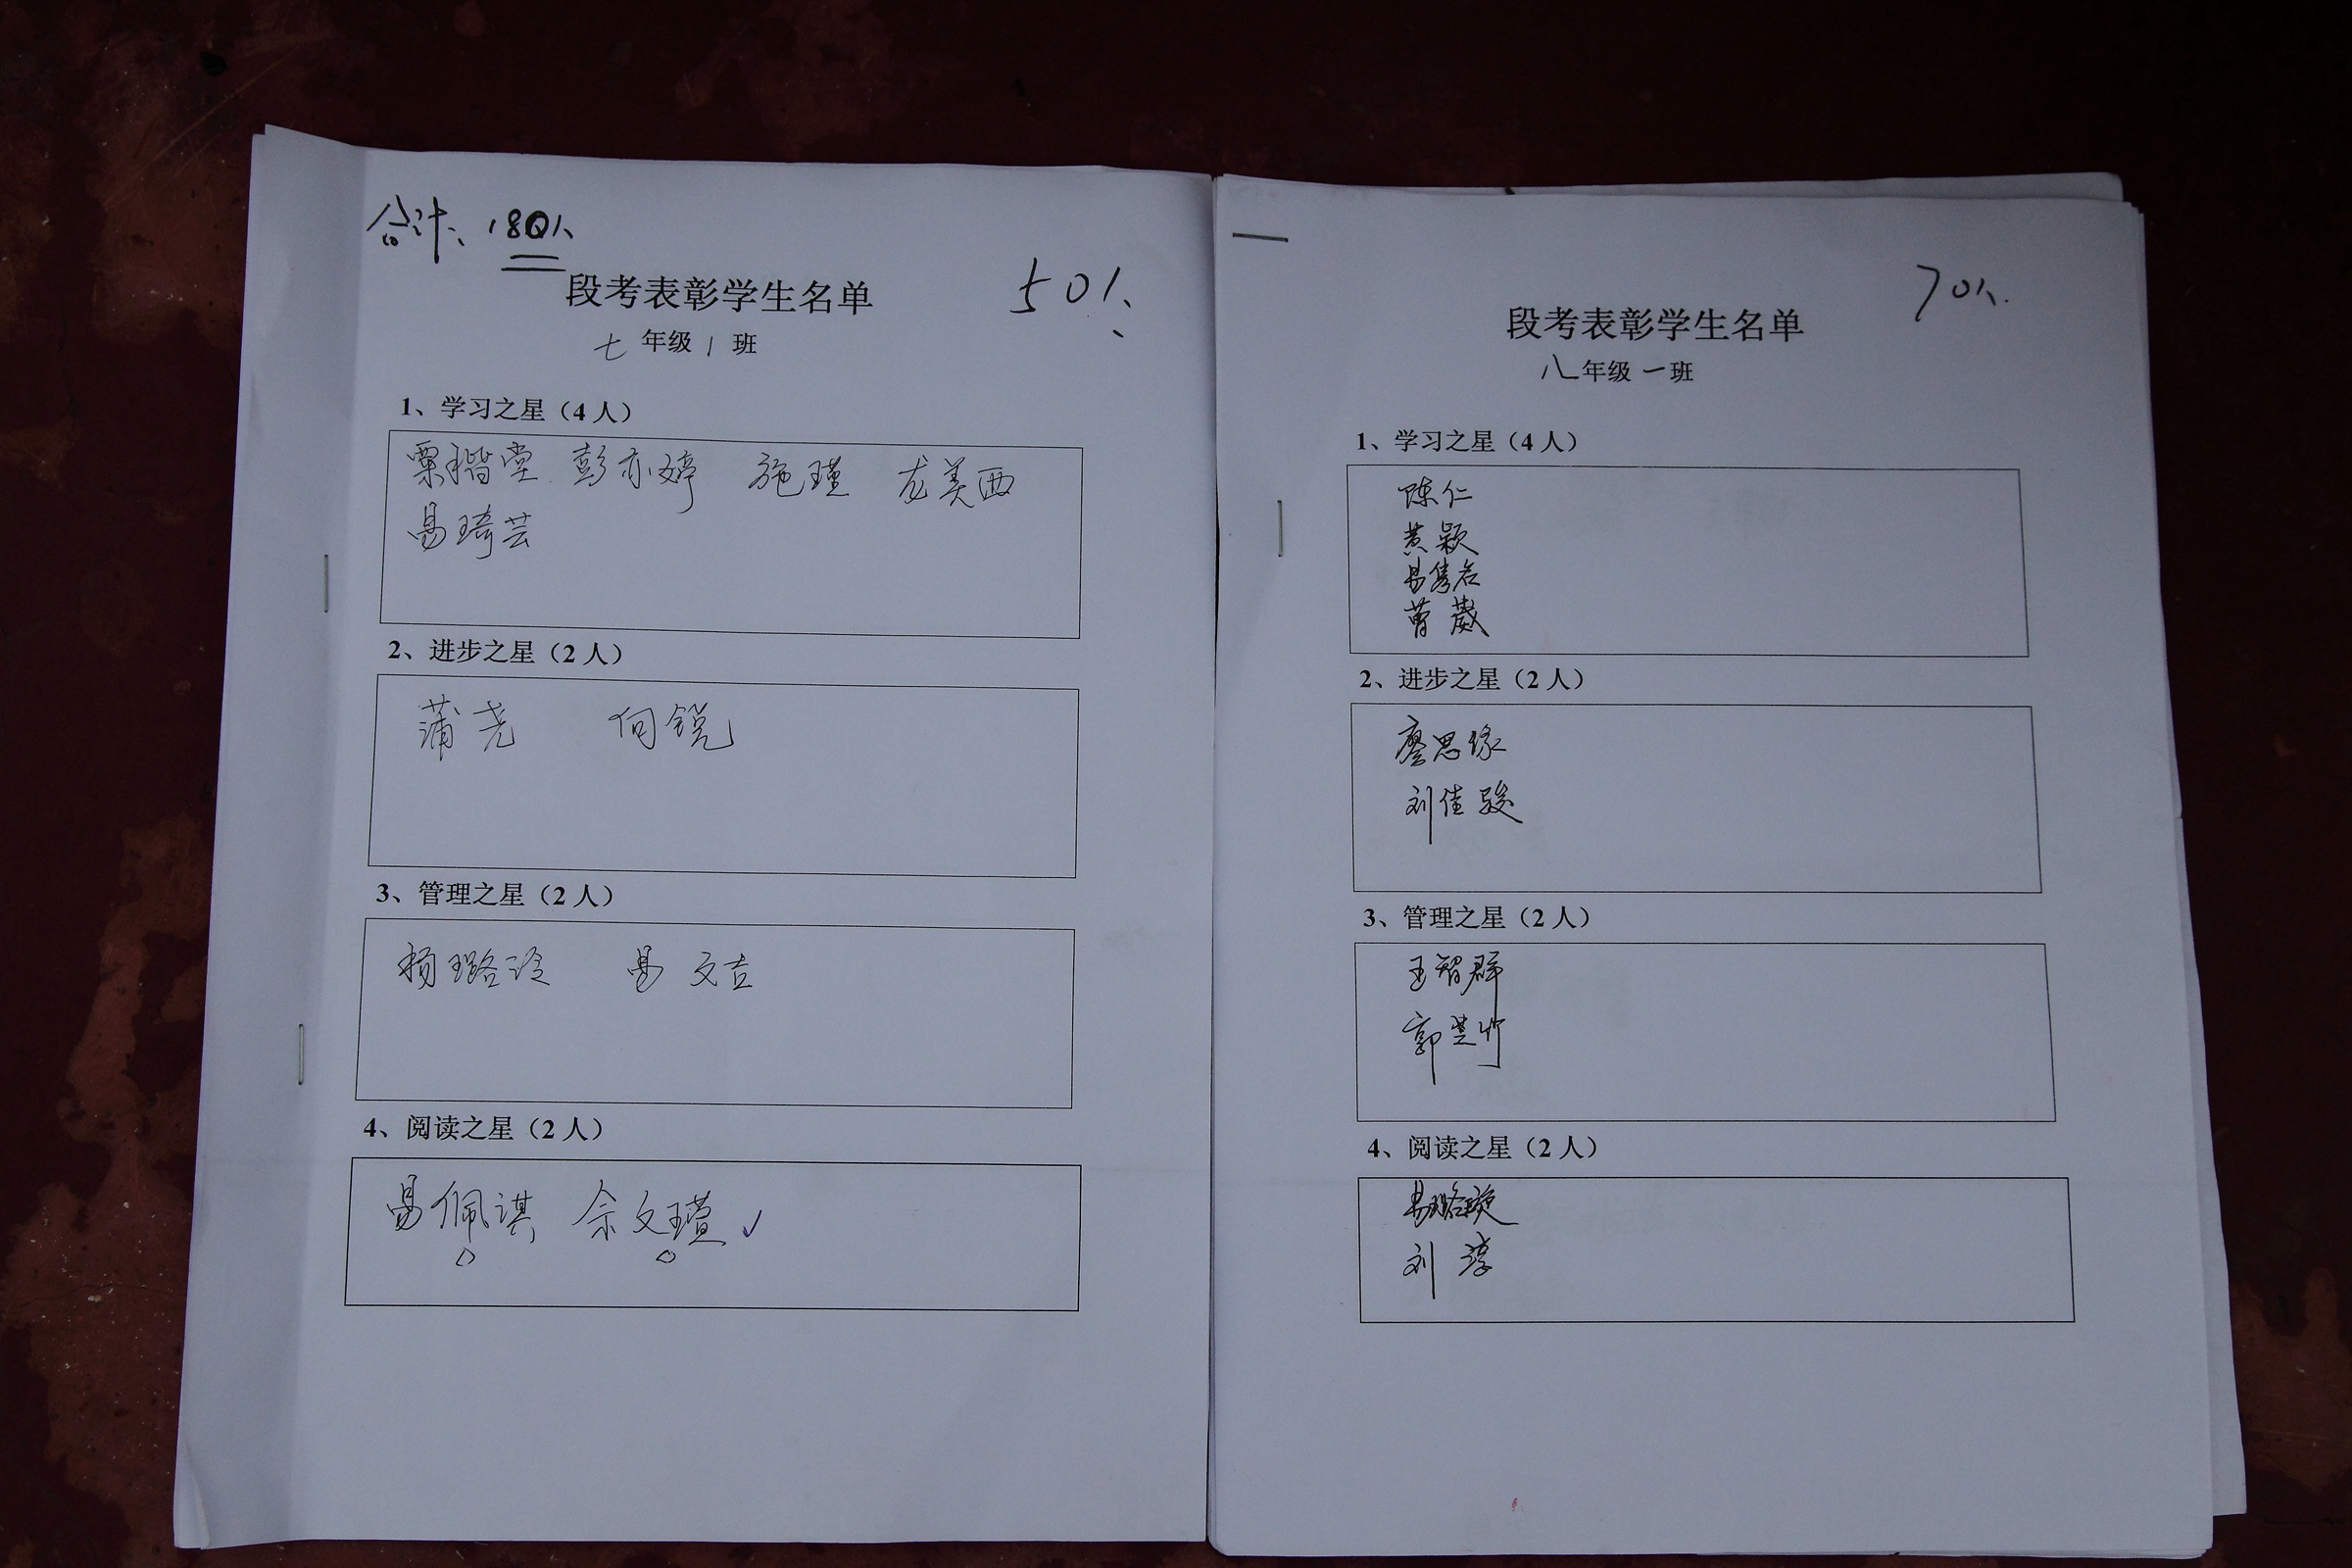 合计：180人
段考表彰学生名单
50人
七年级1班
1、学习之星（4人）
粟稭堂 彭亦婷 施瑾 龙美西
易琦芸
2、进步之星（2人）
蒲尧 向锐
3、管理之星（2人）
杨璐 易文吉
4、阅读之星（2人）
易佩淇 佘文瑄
70人
段考表彰学生名单
八年级一班
1、学习之星（4人）
陈仁
黄颖
易隽名
曹葳
2、进步之星（2人）
廖思缘
刘佳骏
3、管理之星（2人）
王智群
郭芸竹
4、阅读之星（2人）
易璐璇
刘淳